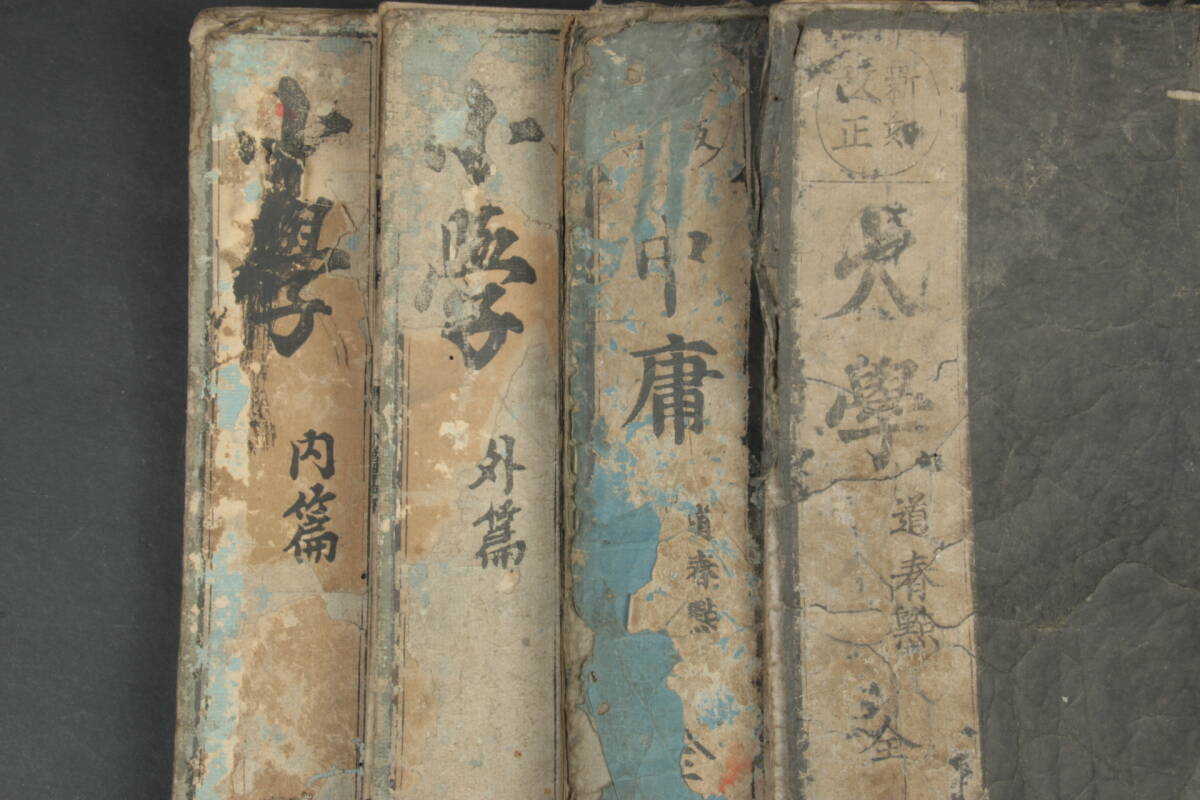 新刻
改正
大學
道春點
全
中庸
道春點
全
小學
外篇
小學
内篇